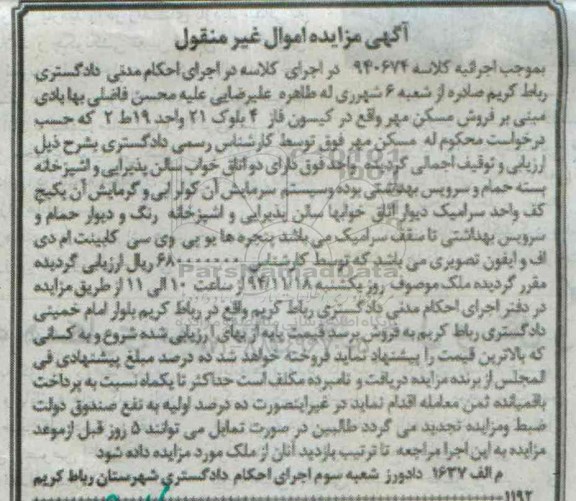 آگهی مزایده اموال غیر منقول
بموجب اجرائیه کلاسه ۹۴۰۶۷۴ در اجرای کلاسه در اجرای احکام مدنی دادگستری
رباط کریم صادره از شعبه ۶ شهرری له طاهره علیرضایی علیه محسن فاضلی بهابادی
مبنی بر فروش مسکن مهر واقع در کیسون فاز ۴ بلوک ۲۱ واحد ۱۹ ط ۲ که حسب
درخواست محکوم له مسکن مهر فوق توسط کارشناس رسمی دادگستری بشرح ذیل
ارزیابی و توقیف اجمالی گردیده واحد فوق دارای دو اتاق خواب سالن پذیرایی و اشپزخانه
بسته حمام و سرویس بهداشتی بوده وسیستم سرمایش آن کولر ابی و گرمایش آن پکیج
کف واحد سرامیک دیوار اتاق خوابها سالن پذیرایی و اشپزخانه رنگ و دیوار حمام و
سرویس بهداشتی تا سقف سرامیک می باشد پنجره ها یو پی وی سی کابینت ام دی
اف و ایفون تصویری می باشد که توسط کارشناس ۶۸۰۰۰۰۰۰۰ ریال ارزیابی گردیده
مقرر گردیده ملک موصوف روز یکشنبه ۹۴/۱۱/۱۸ از ساعت ۱۰ الی ۱۱ از طریق مزایده
در دفتر اجرای احکام مدنی دادگستری رباط کریم واقع در رباط کریم بلوار امام خمینی
دادگستری رباط کریم به فروش برسد قیمت پایه از بهای ارزیابی شده شروع و به کسانی
که بالاترین قیمت را پیشنهاد نماید فروخته خواهد شد ده درصد مبلغ پیشنهادی فی
المجلس از برنده مزایده دریافت و نامبرده مکلف است حداکثر تا یکماه نسبت به پرداخت
باقمیانده ثمن معامله اقدام نماید در غیراینصورت ده درصد اولیه به نفع صندوق دولت
ضبط ومزایده تجدید می گردد طالبین در صورت تمایل می توانند ۵ روز قبل ازموعد
مزایده به این اجرا مراجعه تا ترتیب بازدید آنان از ملک مورد مزایده داده شود
م الف ۱۶۳۷ دادورز شعبه سوم اجرای احکام دادگستری شهرستان رباط کریم
۱۱۹۲
ParsNamadData